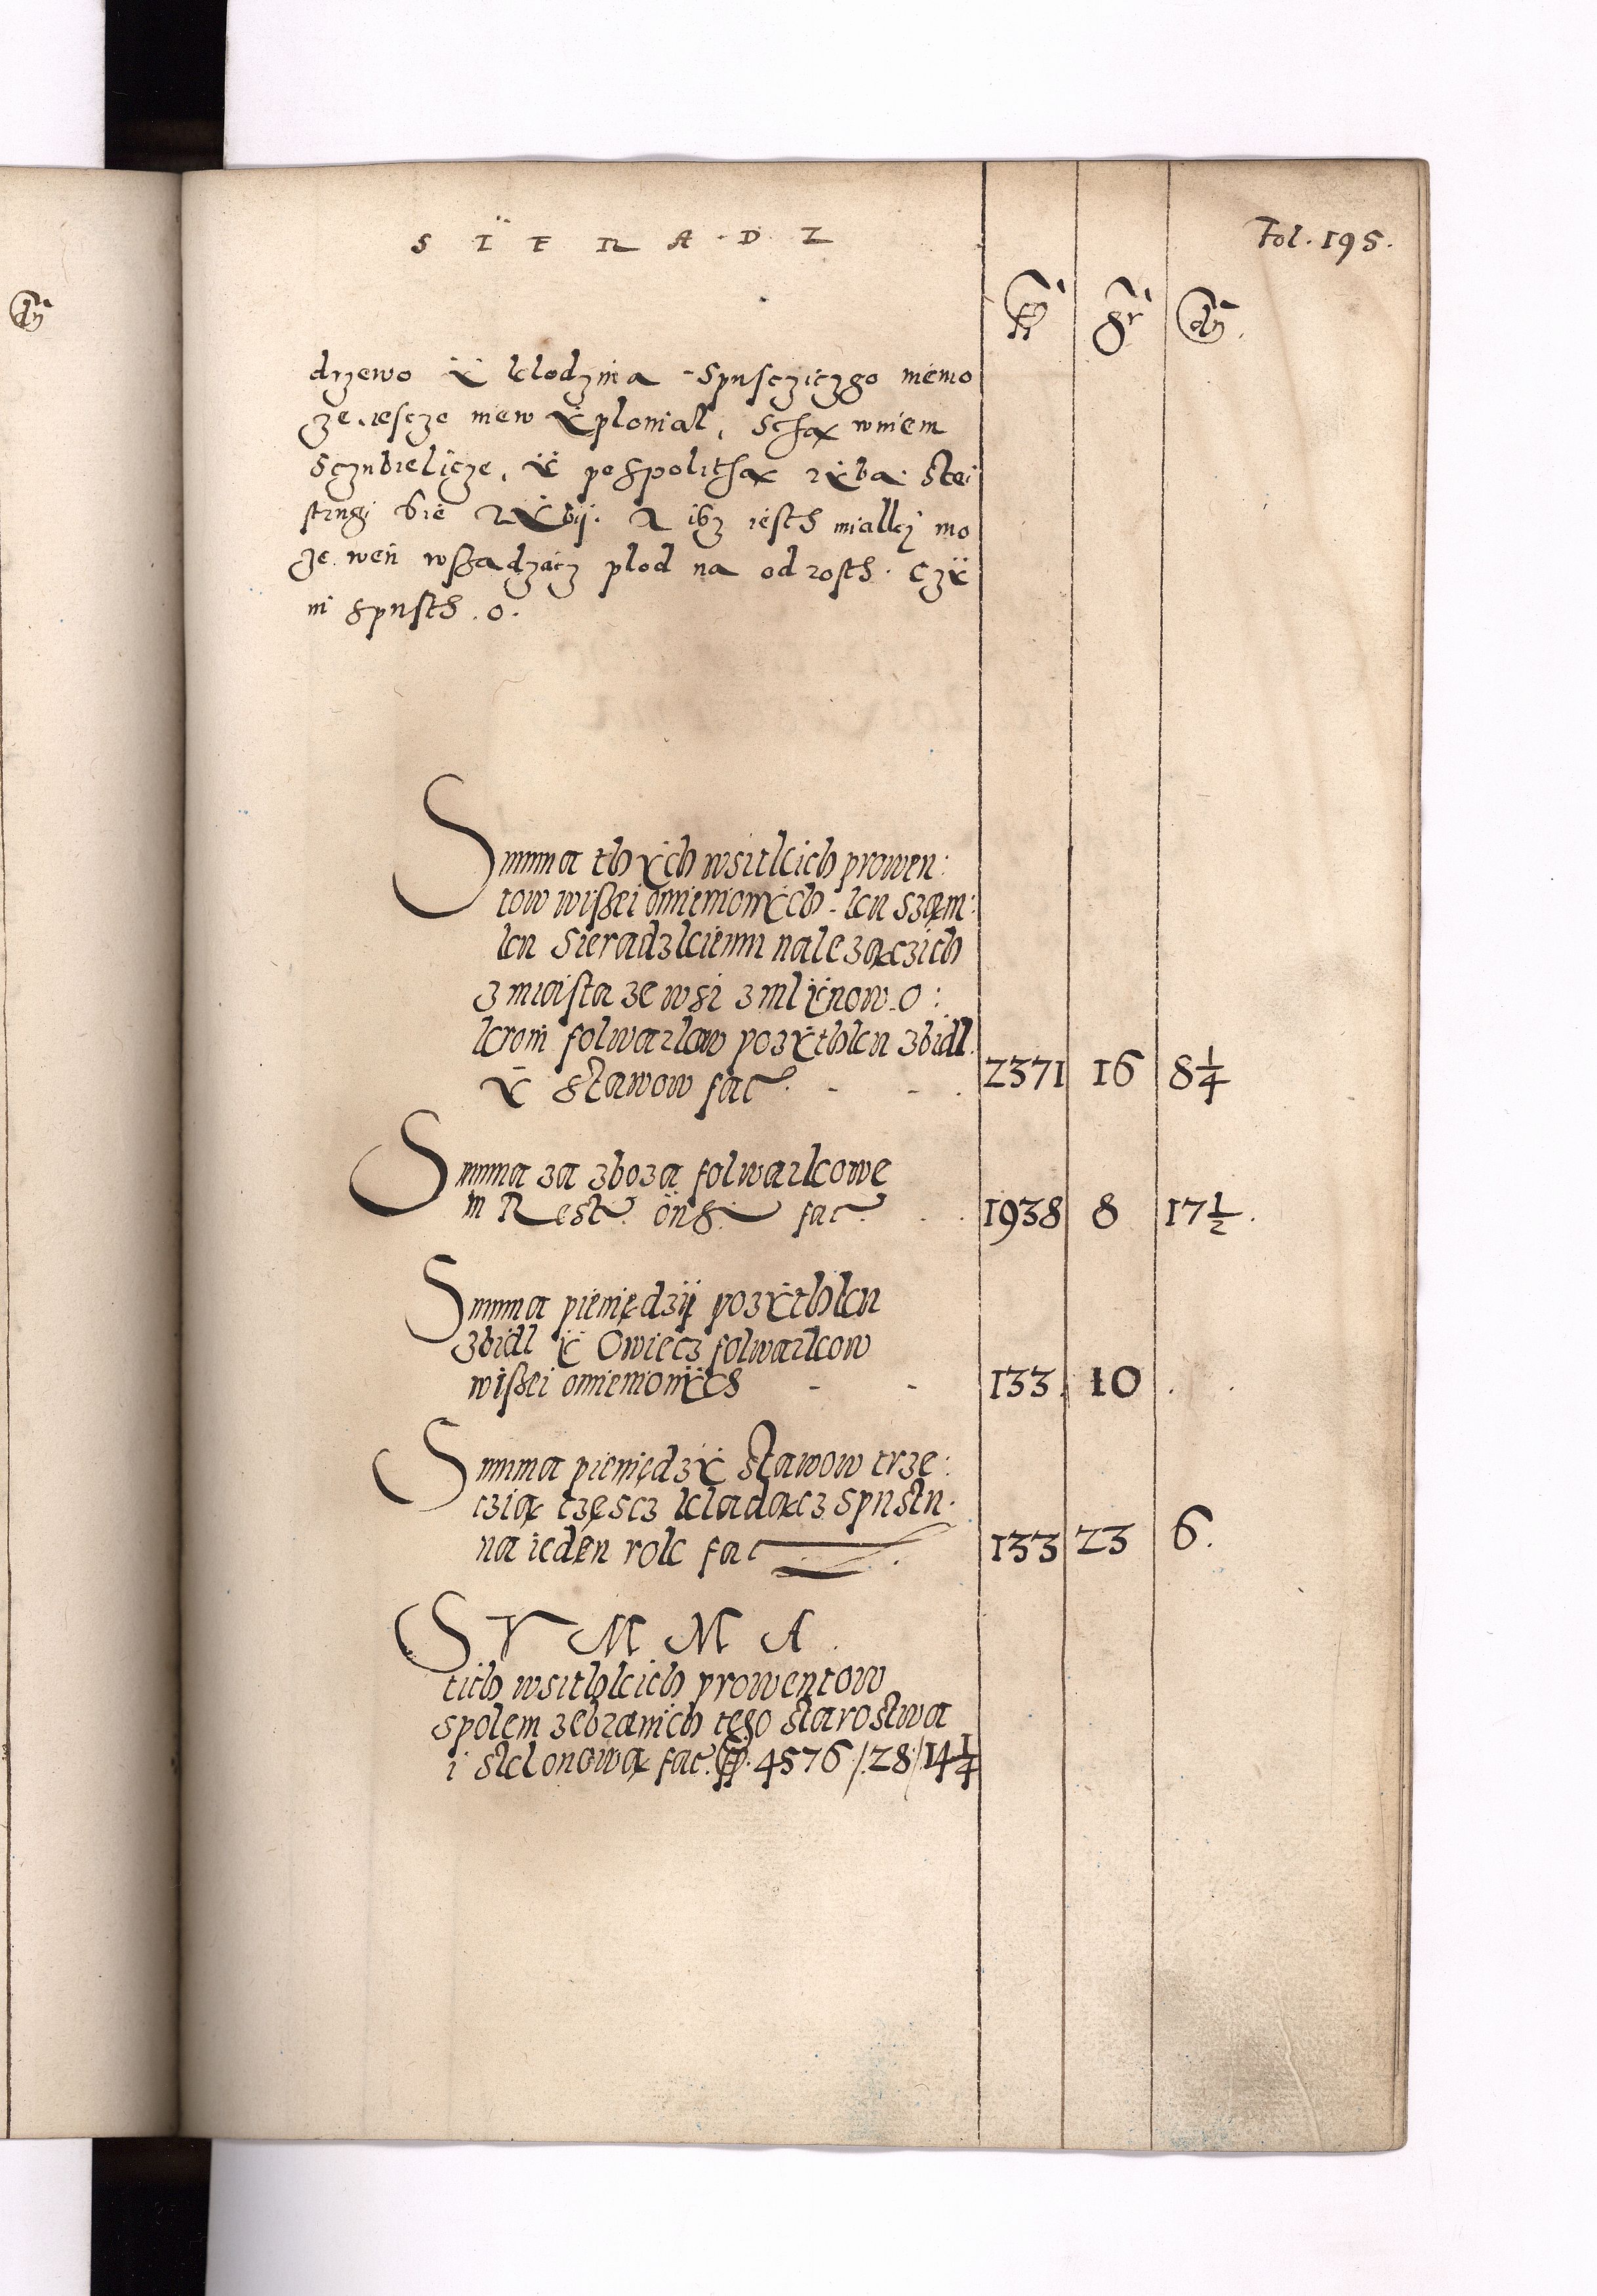 dỹ
S Ï E R A D Z
Fol. 195.
fl gr dỹ.
drzewo ÿ klodzina Spusczicz go niemo
że, iescze niew ÿplonial, Scżą wniem
Sczubielicze, ÿ pospolithą rÿba
strugi Sie rÿbÿ. A isz iesth mialkj mo
że weń wszadzacz plod na odrosth. Czÿ
ni spusth. 0.
Summa thÿch wsitkich prowen:
tow wiszei omienionÿch ku szam:
ku Sieradzkiemu należączich
z miasta ze wsi z mlÿnow o:
krom folwarkow pozÿthku zbidl.
ÿ stawow fac. 2371 16 8 1/4
Summa za zboza folwarkowe
in Rest. fac. 1938 8 17 1/2.
Summa pieniędzÿ pozÿthku
zbidl ÿ Owiecz folwarkow
wiszei omienionÿch 133. 10 .
Summa pieniędzÿ stawow trze:
czią częscz kladącz spustu.
na ieden rok fac 133 23 6.
S V M M A
tich wsithkich prowentow
spolem zebranich tego starostwa
i stclonową fac. fl. 4576 /. 28 / 14 1/4